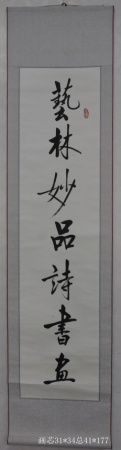 藝林妙品詩書畫
画芯31*134总41*177